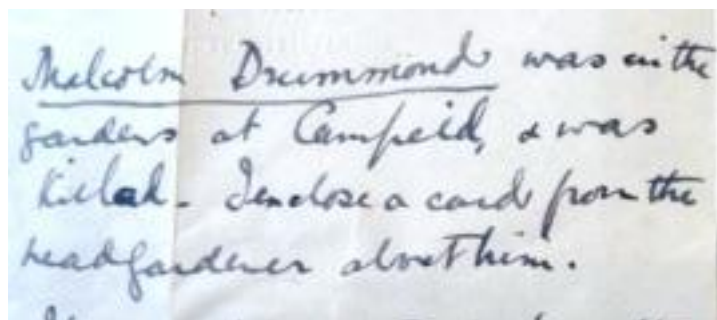 Malcolm Drummond was in the
gardens at Campfield, & was
killed. I enclose a card from the
head gardener about him.